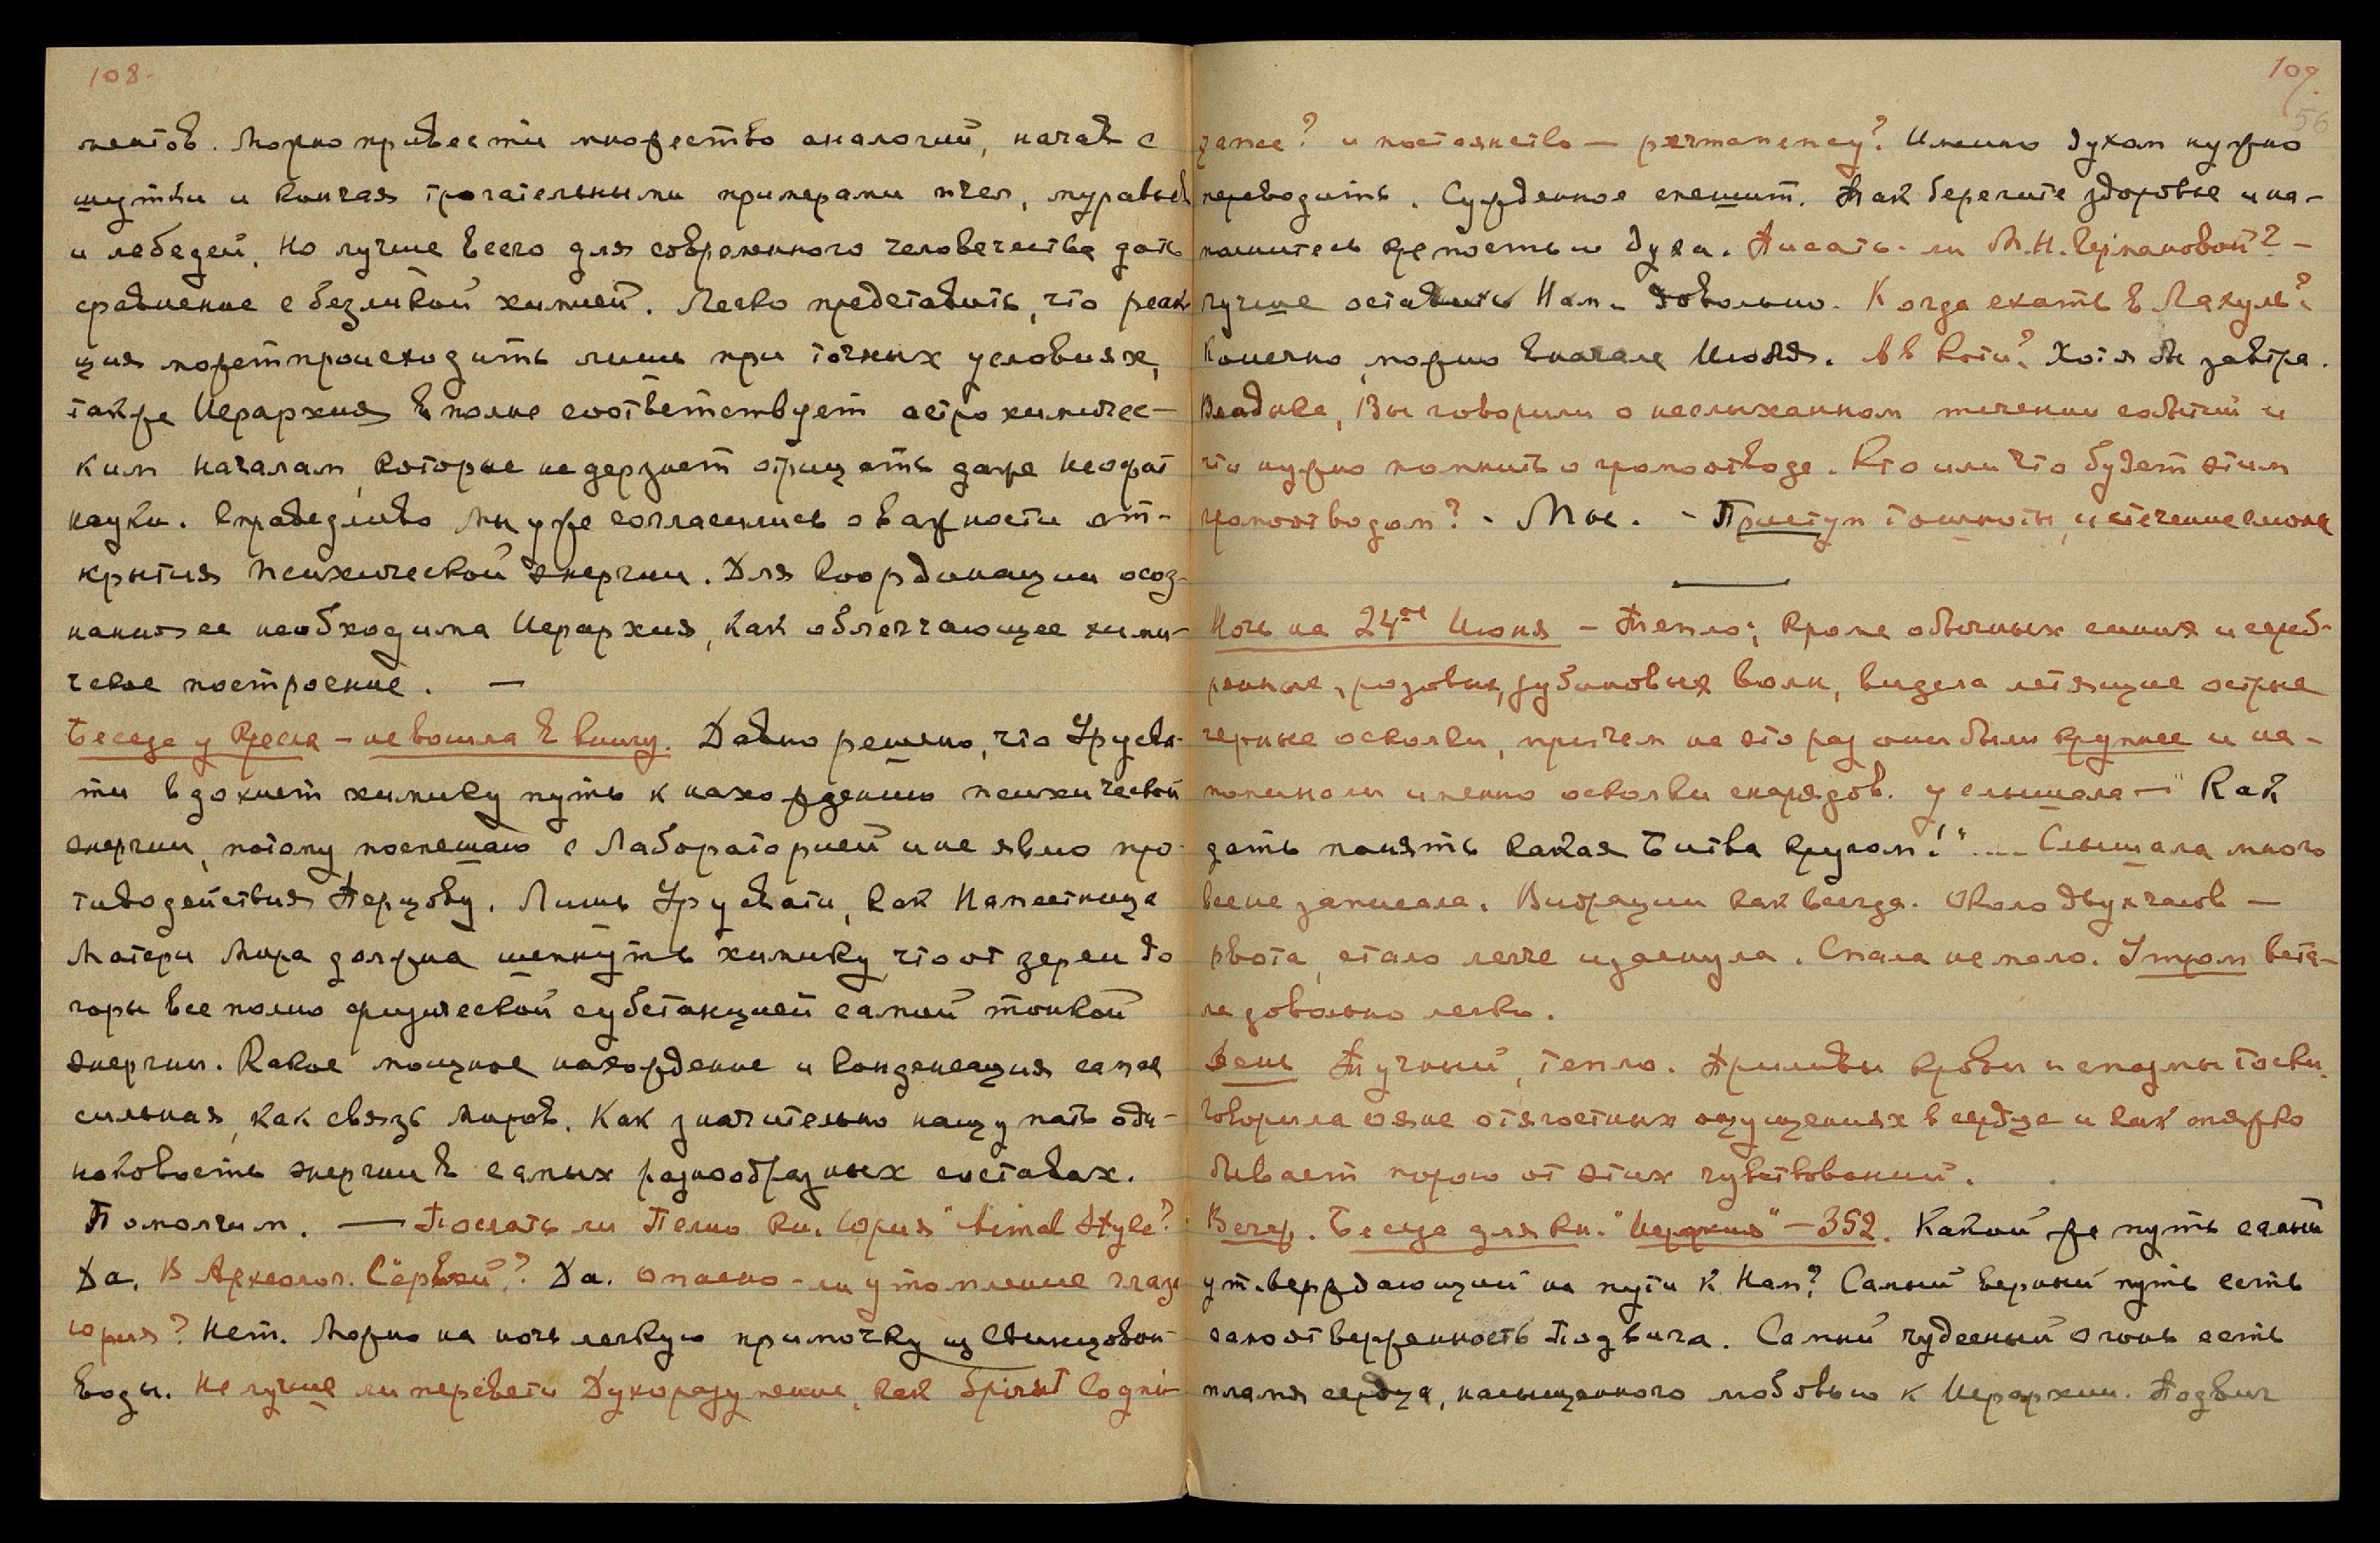 108.
ментов. Можно привести множество аналогий, начав с
шутки и кончая трогательными примерами пчел, муравьев
и лебедей, но лучше всего для современного человечества дать
сравнение с безликой химией. Легко представить, что реак-
ция может происходить лишь при точных условиях,
также Иерархия вполне соответствует астрохимичес-
ким началам, которые не дерзнет отрицать даже неофит
науки. Справедливо Мы уже согласились о важности от-
крытия психической энергии. Для координации осоз-
нания ее необходима Иерархия, как облегчающее хими-
ческое построение. —
Беседа у Кресла – не вошла в книгу. Давно решено, что Урусва-
ти вдохнет химику путь к нахождению психической
энергии, потому поспешаю с Лабораторией и не явлю про-
тиводействия Перцову. Лишь Урусвати, как Наместница
Матери Мира должна шепнуть химику, что от зерен до
горы все полно физической субстанцией самой тонкой
энергии. Какое мощное нахождение и конденсация самая
сильная, как связь миров. Как значительно нащупать оди-
наковость энергии в самых разнообразных составах.
Помолчим. — Послать ли Пелио кн. Юрия "Animal Style"?
Да. В Археолог. Сёрвэй? Да. Опасно-ли утомление глаз
Юрия? Нет. Можно на ночь легкую примочку из свинцовой
воды. Не лучше ли перевести Духоразумение, как Spirit Cogni-
109.
56
zance? и постоянство — permanency? Именно духом нужно
переводить. Сужденное спешит. Так берегите здоровье и на-
полнитесь крепостью духа. Писать-ли М.Н. Германовой? –
лучше оставить Нам. Довольно. Когда ехать в Лахуль?
Конечно, можно в начале Июля. А в Коти? Хотя бы завтра.
Владыка, Вы говорили о неслыханном течении событий и
что нужно помнить о громоотводе. Кто или что будет этим
громоотводом? – Мы. – Приступ тошноты, истечение слюны
Ночь на 24ое Июня – Тепло; кроме обычных синих и сереб-
ренные, розовых, рубиновых волн, видела летящие острые
черные осколки, причем на это раз они были крупнее и на-
поминали именно осколки снарядов. Услышала — "Как
дать понять какая Битва кругом!" .... Слышала много
все не записала. Вибрации как всегда. Около двух часов —
рвота, стало легче и заснула. Спала не мало. Утром вста-
ла довольно легко.
День Тучный, тепло. Приливы крови и спазмы тоски.
Говорила о яне отягостных ощущениях в сердце и как тяжко
бывает порою от этих чувствований.
Вечер. Беседа для кн. "Иерархия" – 352. Какой же путь самый
утверждающий на пути к Нам? Самый верный путь есть
самоотверженность Подвига. Самый чудесный огонь есть
пламя сердца, насыщенного любовью к Иерархии. Подвиг